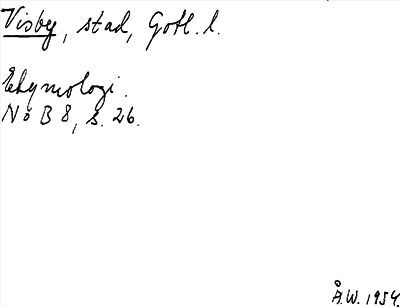 Visby, stad, Gotl. l.
Etymologi.
NoB 8, s. 26.
Å.W. 1954.